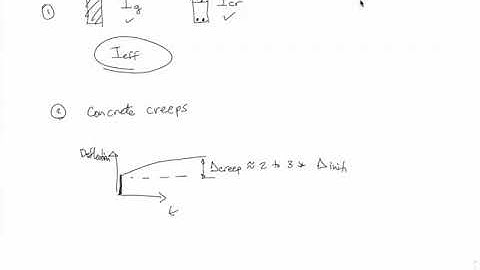 ① Ig Icr
Ieff
② Concrete creeps
Deflection
Δcreep ≈ 2 to 3 * Δinit
t